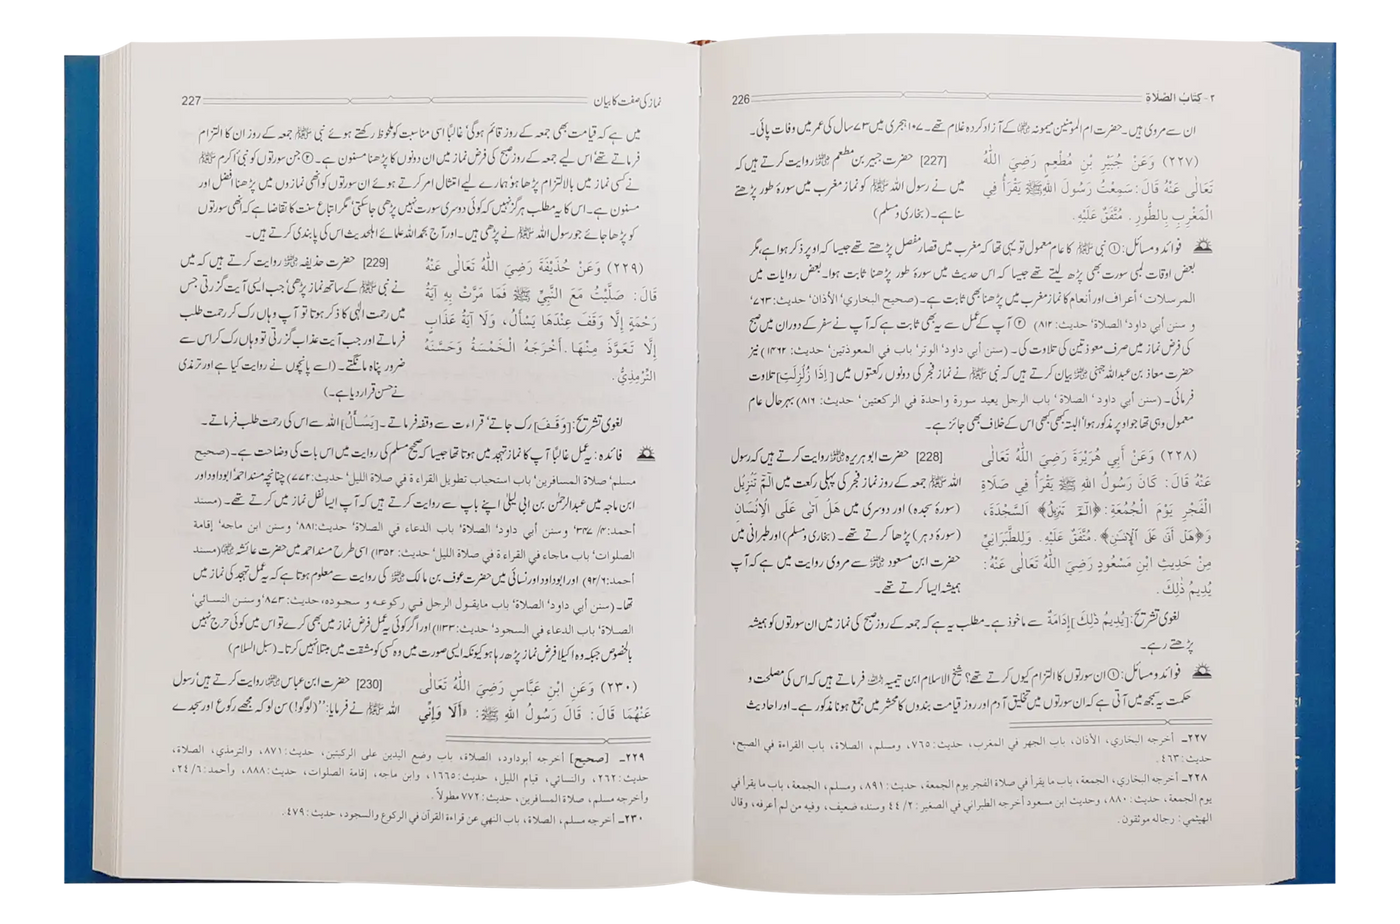 ٢- كتابُ الصَّلَاةِ 226
ان سے مروی ہیں۔ حضرت ام المؤمنین میمونہ ؓ کے آزاد کردہ غلام تھے۔ ۱۰۷ ہجری میں ۷۳ سال کی عمر میں وفات پائی۔
(٢٢٧) وَعَنْ جُبَيْرِ بْنِ مُطْعِمٍ رَضِيَ اللهُ
تَعَالَى عَنْهُ قَالَ: سَمِعْتُ رَسُولَ اللهِ ﷺ يَقْرَأُ فِي
الْمَغْرِبِ بِالطُّورِ. مُتَّفَقٌ عَلَيْهِ.
[227] حضرت جبیر بن مطعم ؓ روایت کرتے ہیں کہ
میں نے رسول اللہ ﷺ کو نماز مغرب میں سورۂ طور پڑھتے
سنا ہے۔ (بخاری و مسلم)
فوائد و مسائل: ① نبی ﷺ کا عام معمول تو یہی تھا کہ مغرب میں قصار مفصل پڑھتے تھے جیسا کہ اوپر ذکر ہوا ہے، مگر
بعض اوقات لمبی سورت بھی پڑھ لیتے تھے جیسا کہ اس حدیث میں سورۂ طور پڑھنا ثابت ہوا۔ بعض روایات میں
المرسلات، أعراف اور أنعام کا نماز مغرب میں پڑھنا بھی ثابت ہے۔ (صحيح البخاري، الأذان، حديث: ۷۶۳
و سنن أبي داود، الصلاة، حديث: ۸۱۲) ② آپ کے عمل سے یہ بھی ثابت ہے کہ آپ نے سفر کے دوران میں صبح
کی فرض نماز میں صرف معوذتین کی تلاوت کی۔ (سنن أبي داود، الوتر، باب في المعوذتين، حديث: ۱۴۶۲) نیز
حضرت معاذ بن عبداللہ جہنی ؓ بیان کرتے ہیں کہ نبی ﷺ نے نماز فجر کی دونوں رکعتوں میں [إِذَا زُلْزِلَتِ] تلاوت
فرمائی۔ (سنن أبي داود، الصلاة، باب الرجل يعيد سورة واحدة في الركعتين، حديث: ۸۱۶) بہرحال عام
معمول وہی تھا جو اوپر مذکور ہوا، البتہ کبھی کبھی اس کے خلاف بھی جائز ہے۔
(٢٢٨) وَعَنْ أَبِي هُرَيْرَةَ رَضِيَ اللهُ تَعَالَى
عَنْهُ قَالَ: كَانَ رَسُولُ اللهِ ﷺ يَقْرَأُ فِي صَلَاةِ
الْفَجْرِ يَوْمَ الْجُمُعَةِ: ﴿الٓمٓ تَنزِيلُ﴾ السَّجْدَةَ،
وَ﴿هَلْ أَتَىٰ عَلَى الْإِنسَٰنِ﴾. مُتَّفَقٌ عَلَيْهِ. وَلِلطَّبَرَانِيِّ
مِنْ حَدِيثِ ابْنِ مَسْعُودٍ رَضِيَ اللهُ تَعَالَى عَنْهُ:
يُدِيمُ ذٰلِكَ.
[228] حضرت ابوہریرہ ؓ روایت کرتے ہیں کہ رسول
اللہ ﷺ جمعہ کے روز نماز فجر کی پہلی رکعت میں الٓمٓ تَنْزِيْل
(سورۂ سجدہ) اور دوسری میں هَلْ اَتٰى عَلَى الْاِنْسَانِ
(سورۂ دہر) پڑھا کرتے تھے۔ (بخاری و مسلم) اور طبرانی میں
حضرت ابن مسعود ؓ سے مروی روایت میں ہے کہ آپ
ہمیشہ ایسا کرتے تھے۔
لغوی تشریح: [يُدِيمُ ذٰلِكَ] إِدَامَةٌ سے ماخوذ ہے۔ مطلب یہ ہے کہ جمعہ کے روز صبح کی نماز میں ان سورتوں کو ہمیشہ
پڑھتے رہے۔
فوائد و مسائل: ① ان سورتوں کا التزام کیوں کرتے تھے؟ شیخ الاسلام ابن تیمیہ ؒ فرماتے ہیں کہ اس کی مصلحت و
حکمت یہ سمجھ میں آتی ہے کہ ان سورتوں میں تخلیق آدم اور روز قیامت بندوں کا محشر میں جمع ہونا مذکور ہے۔ اور احادیث
٢٢٧ـ أخرجه البخاري، الأذان، باب الجهر في المغرب، حديث: ٧٦٥، ومسلم، الصلاة، باب القراءة في الصبح،
حديث: ٤٦٣.
٢٢٨ـ أخرجه البخاري، الجمعة، باب ما يقرأ في صلاة الفجر يوم الجمعة، حديث: ٨٩١، ومسلم، الجمعة، باب ما يقرأ في
يوم الجمعة، حديث: ٨٨٠، وحديث ابن مسعود أخرجه الطبراني في الصغير: ٢/ ٤٤ وسنده ضعيف، وفيه من لم أعرفه، وقال
الهيثمي: رجاله موثقون.
نماز کی صفت کا بیان 227
میں ہے کہ قیامت بھی جمعہ کے روز قائم ہوگی، غالباً اسی مناسبت کو ملحوظ رکھتے ہوئے نبی ﷺ جمعہ کے روز ان کا التزام
فرماتے تھے، اس لیے جمعہ کے روز صبح کی فرض نماز میں ان دونوں کا پڑھنا مسنون ہے۔ ② جن سورتوں کو نبی ٔاکرم ﷺ
نے کسی نماز میں بالالتزام پڑھا ہو، ہمارے لیے امتثال امر کرتے ہوئے ان سورتوں کو انھی نمازوں میں پڑھنا افضل اور
مسنون ہے۔ اس کا یہ مطلب ہرگز نہیں کہ کوئی دوسری سورت نہیں پڑھی جاسکتی، مگر اتباع سنت کا تقاضا ہے کہ انھی سورتوں
کو پڑھا جائے جو رسول اللہ ﷺ نے پڑھی ہیں۔ اور آج بحمد اللہ علمائے اہلحدیث اس کی پابندی کرتے ہیں۔
(٢٢٩) وَعَنْ حُذَيْفَةَ رَضِيَ اللهُ تَعَالَى عَنْهُ
قَالَ: صَلَّيْتُ مَعَ النَّبِيِّ ﷺ فَمَا مَرَّتْ بِهِ آيَةُ
رَحْمَةٍ إِلَّا وَقَفَ عِنْدَهَا يَسْأَلُ، وَلَا آيَةُ عَذَابٍ
إِلَّا تَعَوَّذَ مِنْهَا. أَخْرَجَهُ الْخَمْسَةُ وَحَسَّنَهُ
التِّرْمِذِيُّ.
[229] حضرت حذیفہ ؓ روایت کرتے ہیں کہ میں
نے نبی ﷺ کے ساتھ نماز پڑھی، جب ایسی آیت گزرتی جس
میں رحمت الٰہی کا ذکر ہوتا تو آپ وہاں رک کر رحمت طلب
فرماتے اور جب آیت عذاب گزرتی تو وہاں رک کر اس سے
ضرور پناہ مانگتے۔ (اسے پانچوں نے روایت کیا ہے اور ترمذی
نے حسن قرار دیا ہے۔)
لغوی تشریح: [وَقَفَ] رک جاتے، قراءت سے وقفہ فرماتے۔ [يَسْأَلُ] اللہ سے اس کی رحمت طلب فرماتے۔
فائدہ: یہ عمل غالباً آپ کا نماز تہجد میں ہوتا تھا جیسا کہ صحیح مسلم کی روایت میں اس بات کی وضاحت ہے۔ (صحيح
مسلم، صلاة المسافرين، باب استحباب تطويل القراءة في صلاة الليل، حديث: ۷۷۲) چنانچہ مسند احمد، ابوداود اور
ابن ماجہ میں عبدالرحمٰن بن ابی لیلیٰ اپنے باپ سے روایت کرتے ہیں کہ آپ ایسا نفل نماز میں کرتے تھے۔ (مسند
أحمد: ۴/ ۳۴۷، وسنن أبي داود، الصلاة، باب الدعاء في الصلاة، حديث: ۸۸۱، وسنن ابن ماجه، إقامة
الصلوات، باب ماجاء في القراءة في صلاة الليل، حديث: ۱۳۵۲) اسی طرح مسند احمد میں حضرت عائشہ ؓ (مسند
أحمد: ۶/ ۹۲) اور ابوداود اور نسائی میں حضرت عوف بن مالک ؓ کی روایت سے معلوم ہوتا ہے کہ یہ عمل تہجد کی نماز میں
تھا۔ (سنن أبي داود، الصلاة، باب مايقول الرجل في ركوعه و سجوده، حديث: ۸۷۳، وسنن النسائي،
الصلاة، باب الدعاء في السجود، حديث: ۱۱۳۳) اور اگر کوئی یہ عمل فرض نماز میں بھی کرے تو اس میں کوئی حرج نہیں
بالخصوص جبکہ وہ اکیلا فرض نماز پڑھ رہا ہو کیونکہ ایسی صورت میں وہ کسی کو مشقت میں مبتلا نہیں کرتا۔ (سبل السلام)
(٢٣٠) وَعَنِ ابْنِ عَبَّاسٍ رَضِيَ اللهُ تَعَالَى
عَنْهُمَا قَالَ: قَالَ رَسُولُ اللهِ ﷺ: «أَلَا وَإِنِّي
[230] حضرت ابن عباس ؓ روایت کرتے ہیں، رسول
اللہ ﷺ نے فرمایا: ’’(لوگو!) سن لو کہ مجھے رکوع اور سجدے
٢٢٩ـ [صحيح] أخرجه أبوداود، الصلاة، باب وضع اليدين على الركبتين، حديث: ٨٧١، والترمذي، الصلاة،
حديث: ٢٦٢، والنسائي، قيام الليل، حديث: ١٦٦٥، وابن ماجه، إقامة الصلوات، حديث: ٨٨٨، وأحمد: ٦/ ٢٤،
وأخرجه مسلم، صلاة المسافرين، حديث: ٧٧٢ مطولاً.
٢٣٠ـ أخرجه مسلم، الصلاة، باب النهي عن قراءة القرآن في الركوع والسجود، حديث: ٤٧٩.